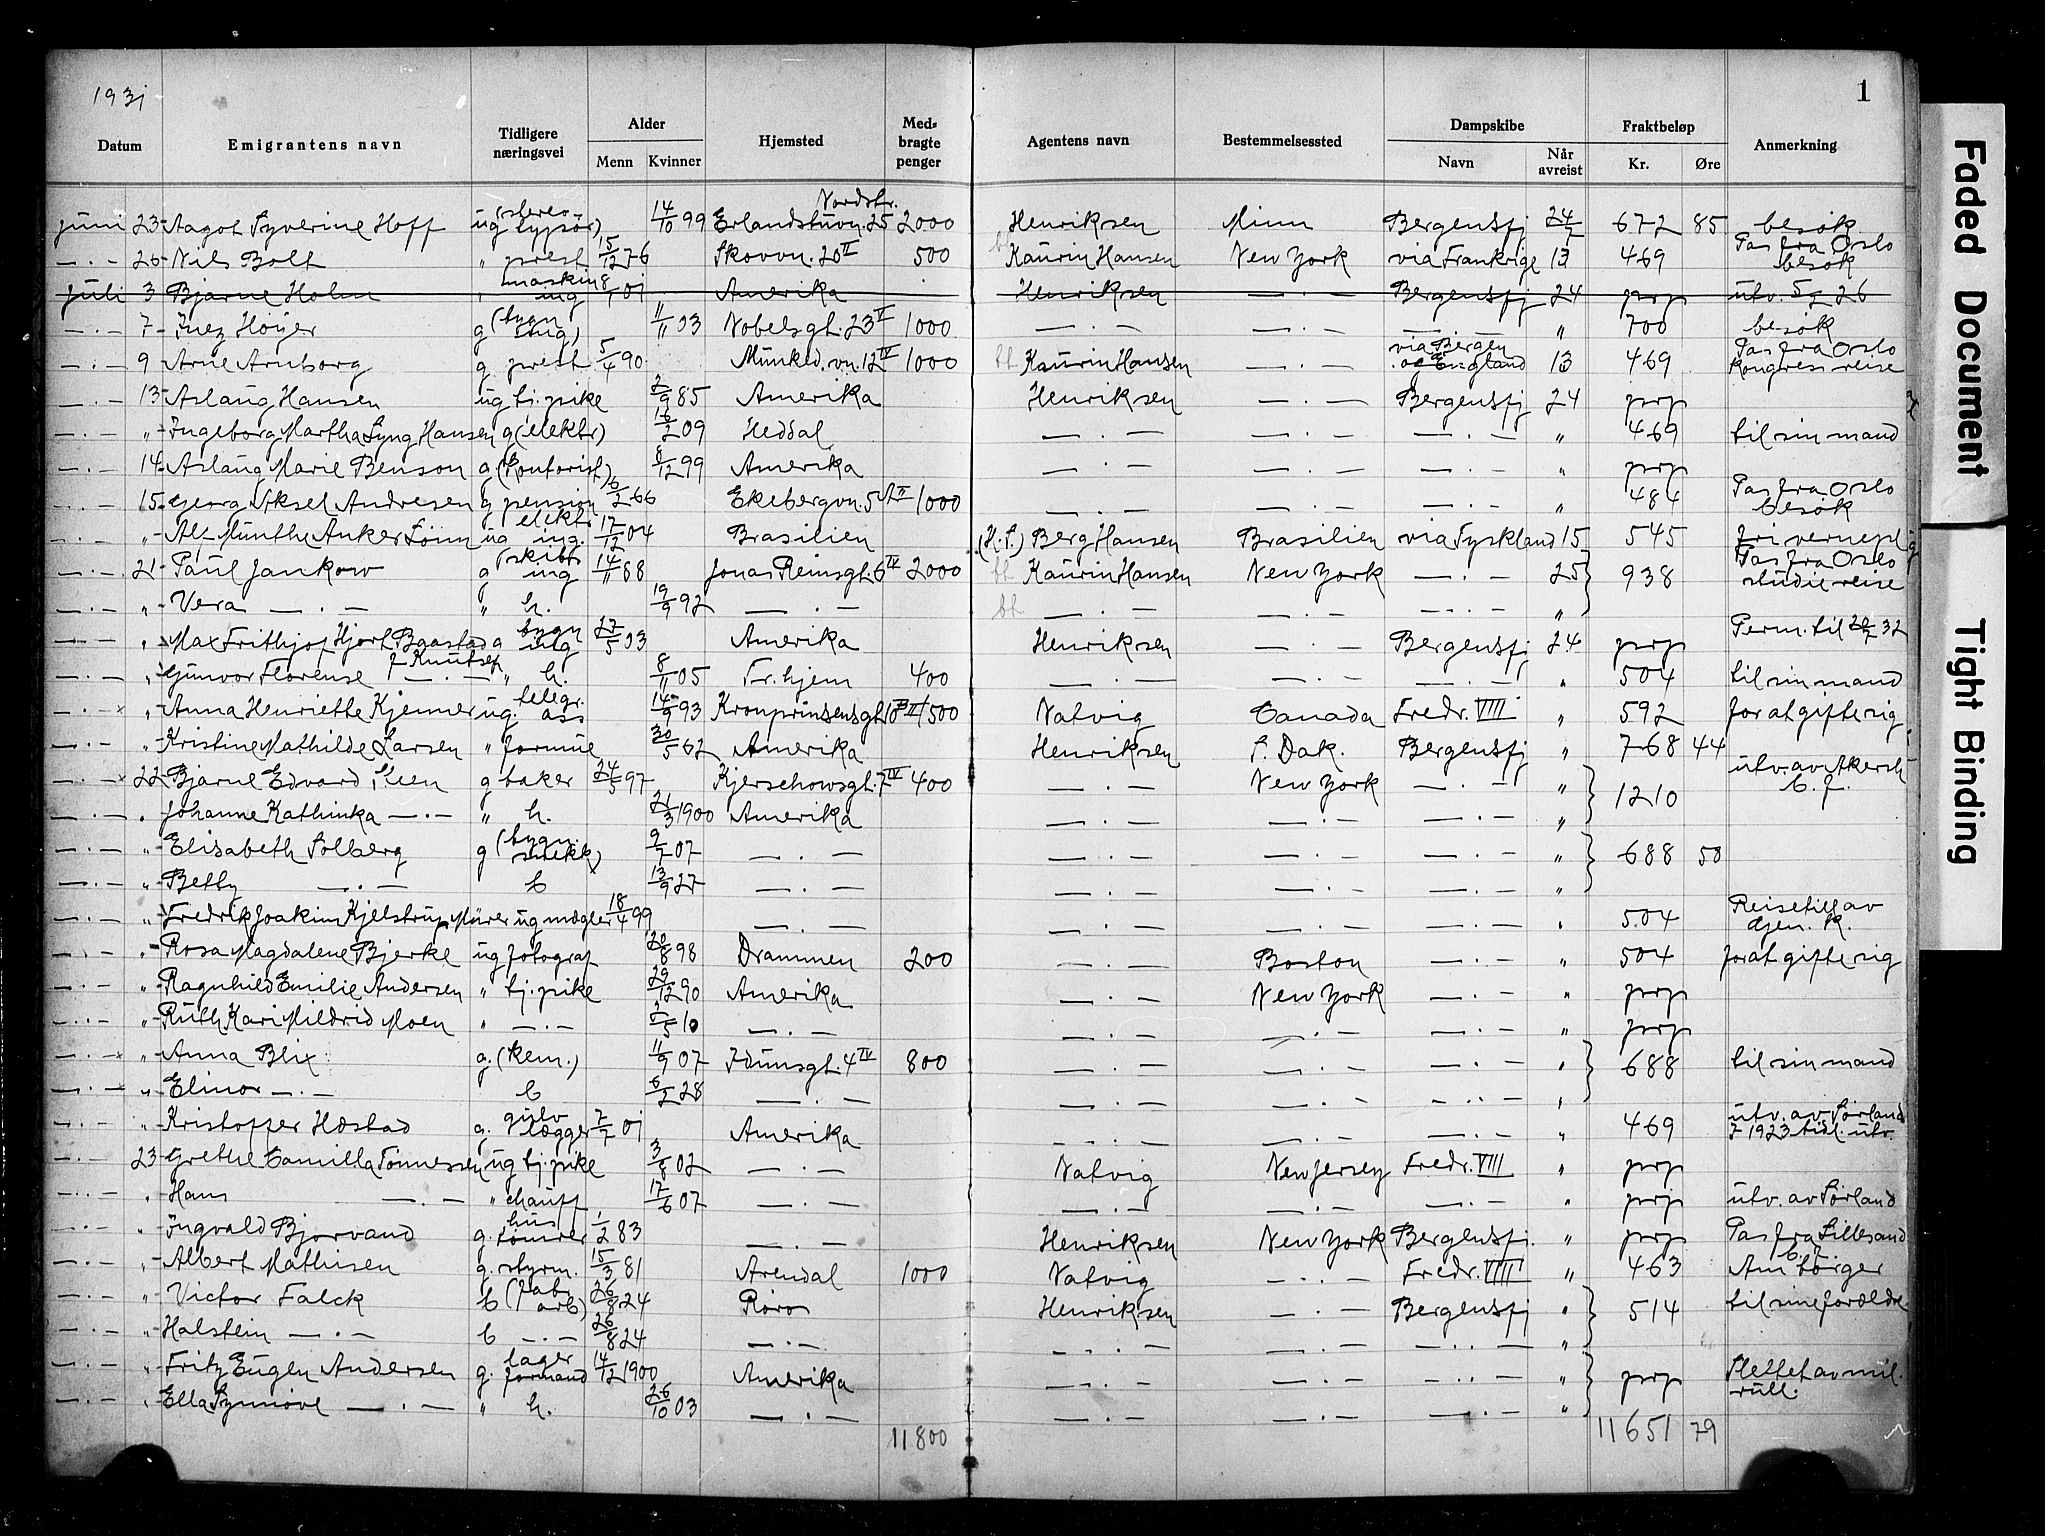 1931
1
Datum | Emigrantens navn | Tidligere næringsvei | Alder | Menn | Kvinner | Hjemsted | Medbragte penger | Agentens navn | Bestemmelsessted | Dampskibe | Navn | Når avreist | Fraktbeløp | Kr. | Øre | Anmerkning
juni 23 Aagot Syverine Hoff ug (stereotypør) 14/10 99 Nordstr. Erlandstuvn. 25 2000 Henriksen Minn Bergensfj 24/7 672 85 besøk
—·— 26 Nils Bolt " prest 15/12 76 Skovvn. 20 II 500 Kaurin Hansen New York via Frankrige 13 469 Pas fra Oslo besøk
juli 3 Bjarne Holm " maskin ing 01 Amerika Henriksen —·— Bergensfj 24 prp utv. 26
—·— 7 Inez Höyer g (bygn ing) 11/11 03 Nobelsgt. 23 V 1000 —·— —·— —·— " 700 besøk
—·— 9 Arne Arnborg g. prest 5/4 90 Munked.vn. 12 IV 1000 Kaurin Hansen —·— via Bergen og England 13 469 Pas fra Oslo Kongressreise
—·— 13 Aslaug Hansen ug tj.pike 2/9 85 Amerika Henriksen —·— Bergensfj 24 prp
—·— " Ingeborg Martha Lyng Hansen g (elektr) 16/2 09 Heddal —·— —·— —·— " 469 til sin mand
—·— 14 Aslaug Marie Benson g (kontorist) 8/12 99 Amerika —·— —·— —·— " prp
—·— 15 Georg Aksel Andresen g pension 6/2 66 Ekebergvn. 5 1000 —·— —·— —·— " 484 Pas fra Oslo besøk
—·— " Alf Munthe Anker Lönn ug elektr ing. 17/12 04 Brasilien (H.S.) Berg Hansen Brasilien via Tyskland 15 545 fri vernepl
—·— 21 Paul Jankow g skibs ing 14/11 88 Jonas Reinsgt. 6 IV 2000 Kaurin Hansen New York —·— 25 938 Pas fra Oslo studiereise
—·— " Vera —·— " h. 19/9 92 —·— —·— —·— —·— "
—·— " Max Frithjof Hjort Baastad g bygn ing 27/5 03 Amerika Henriksen —·— Bergensfj 24 prp Perm. til 32
—·— " Gunvor Florense f. Knutsen —·— " h. 8/11 05 Fr. hjem 400 —·— —·— —·— " 504 til sin mand
—·— " Anna Henriette Kjenner ug. telegr. ass 14/9 93 Kronprinsensgt. 500 Natvig Canada Fredr. VIII " 592 for at gifte sig
—·— " Kristine Mathilde Larsen " formue 30/5 62 Amerika Henriksen S. Dak. Bergensfj " 768 44
—·— 22 Bjarne Edvard Steen g baker 24/5 97 Kjerschowsgt. 7 IV 400 —·— New York —·— " 1210 utv. av Akersh b.f.
—·— " Johanne Kathinka —·— " h. 21/3 1900 Amerika —·— —·— —·— "
—·— " Elisabeth Solberg g (bygn. snekk) 9/7 07 —·— —·— —·— —·— " 688 50
—·— " Betty —·— b 13/9 27 —·— —·— —·— —·— "
—·— " Fredrik Joakim Kjelstrup Mürer ug mægler 18/4 99 —·— —·— —·— —·— " 504 Reisetill av Gen. K.
—·— " Rosa Magdalene Bjerke ug fotograf 20/8 98 Drammen 200 —·— Boston —·— " 504 for at gifte sig
—·— " Ragnhild Emilie Andersen " tj.pike 29/12 90 Amerika —·— New York —·— " prp
—·— " Ruth Kari Mildrid Moen " —·— 10 —·— —·— —·— —·— " prp
—·— " Anna Blix g. (kem.) 11/9 07 Idunsgt. 4 IV 800 —·— —·— —·— " 688 til sin mand
—·— " Elinor —·— b 6/2 28 —·— —·— —·— —·— "
—·— " Kristoffer Hæstad g. gulv lægger 7/7 01 Amerika —·— —·— —·— " 469 utv. av Sörland 1923 tidl. utv.
—·— 23 Grethe Camilla Tönnessen ug tj.pike 3/8 02 —·— Natvig New Jersey Fredr. VIII " prp
—·— " Hans —·— " chauff 17/6 07 —·— —·— —·— —·— " prp utv. av Sörland
—·— " Ingvald Bjorvand g. hus tömrer 1/2 83 —·— Henriksen New York Bergensfj. " prp Pas fra Lillesand
—·— " Albert Mathisen g. styrm. 15/3 81 Arendal 1000 Natvig —·— Fredr. VIII " 463 Am borger
—·— " Victor Falck b (fab arb) 26/8 24 Röros Henriksen —·— Bergensfj " 514 til sine forældre
—·— " Halstein —·— b —·— 26/8 24 —·— —·— —·— —·— "
—·— " Fritz Eugen Andersen g. lager formand 14/12 1900 Amerika —·— —·— —·— " prp Slettet av mil. rull.
—·— " Ella Synnöve —·— " h. 26/10 03 —·— —·— —·— —·— "
11800 11651 79
Faded Document
Tight Binding